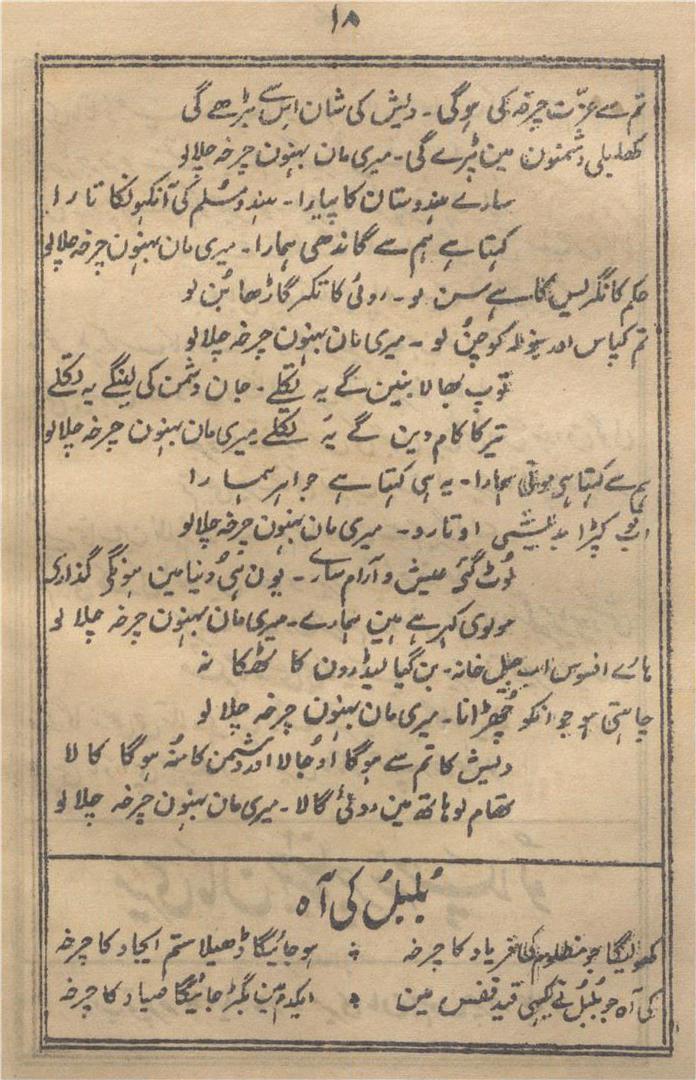 ۱۸
تم سے عزّت چرقہ کی ہوگی۔ دیش کی شان اس سے بڑھے گی
کھلبلی دشمنون مین پڑے گی۔ میری مان بہنون چرخہ چلالو
سارے ہندوستان کا پیارا۔ ہندو مسلم کی آنکہونکا تارا
کہتا ہے ہم سے گاندھی ہمارا۔ میری مان بہنون چرخہ چلالو
حکم کانگریس کا ہے سن لو۔ روئی کا تکر گاڑھا بُن لو
تم کپاس اور کو چُن لو۔ میری مان بہنون چرخہ چلالو
توپ بھالا بنین گے یہ تکلے۔ جان دشمن کی لینگے یہ تکلے
تیر کا کام دین گے یہ تکلے میری مان بہنون چرخہ چلالو
ہم سے کہتا ہی موتی ہمارا۔ یہ ہی کہتا ہے جواہر ہمارا
اب کپڑا بدیشی اوتارو۔ میری مان بہنون چرخہ چلالو
لُوٹ گئی عیش و آرام سارے۔ یون ہی دُنیا مین ہونگی گذاری
مولوی کہہ رہے ہین ہمارے۔ میری مان بہنون چرخہ چلالو
ہائے افسوس اب جیل خانہ۔ بن گیا لیڈرون کا ٹھکانہ
چاہتی ہو جو انکو چُھڑانا۔ میری مان بہنون چرخہ چلالو
دیش کا تم سے ہوگا اوُجالا اور دشمن کا منُہ ہوگا کالا
تھام لو ہاتھ مین روئی گالا۔ میری مان بہنون چرخہ چلالو
بُلبُلُ کی آہ
کھولیگا جو مظلوم کی فریاد کا چرخہ ؞ ہوجائیگا ڈھیلا ستم ایجاد کا چرخہ
کی آہ جو بُلبُلُ نے کبھی قید قفس مین ؞ ایکدم مین بگڑ جائیگا صیاد کا چرخہ